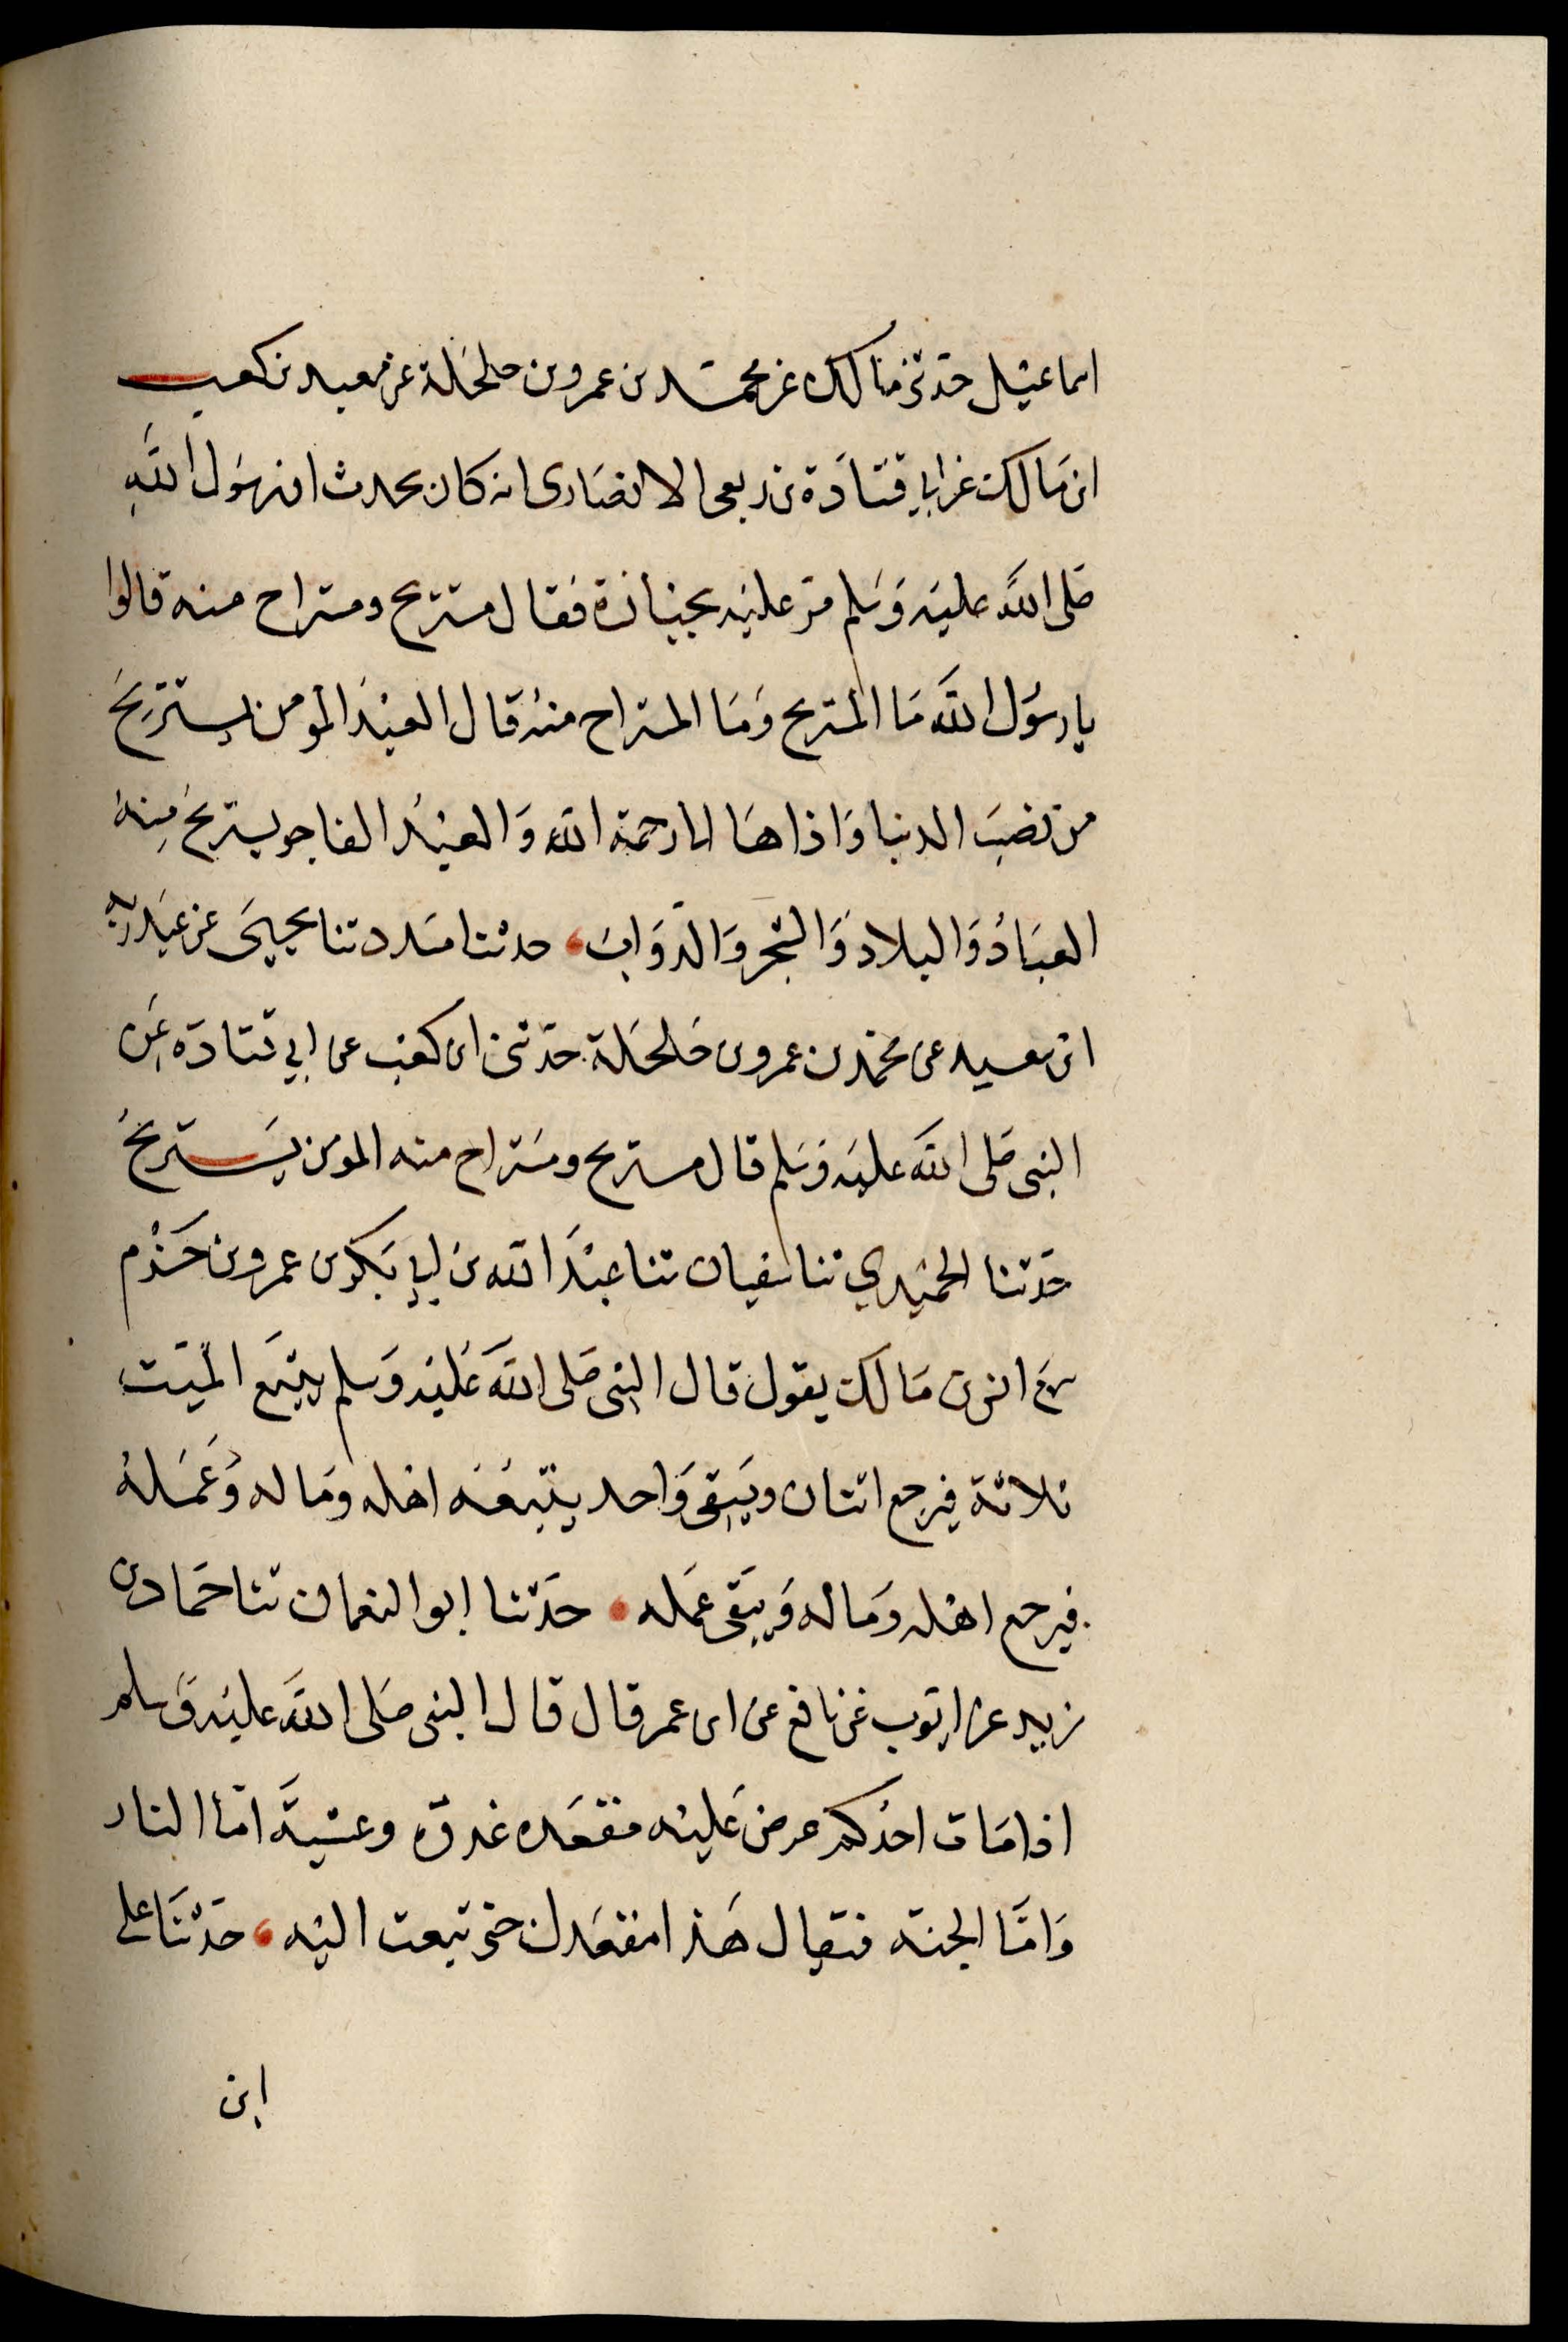 اسماعيل حدثني مالك عن محمد بن عمرو بن حلحلة عن معبد بن كعب
ابن مالك عن ابي قتادة بن ربعي الانصاري انه كان يحدث ان رسول الله
صلى الله عليه وسلم مر عليه بجنازة فقال مستريح ومستراح منه قالوا
يا رسول الله ما المستريح وما المستراح منه قال العبد المومن يستريح
من نصب الدنيا واذاها الى رحمة الله والعبد الفاجر يستريح منه
العباد والبلاد والشجر والدواب، حدثنا مسدد ثنا يحيى عن عبد ربه
ابن سعيد عن محمد بن عمرو بن حلحلة حدثني ابن كعب عن ابي قتادة عن
النبي صلى الله عليه وسلم قال مستريح ومستراح منه المومن يستريح
حدثنا الحميدي ثنا سفيان ثنا عبد الله بن ابي بكر بن عمرو بن حزم
سمع انس بن مالك يقول قال النبي صلى الله عليه وسلم يتبع الميت
ثلاثة فيرجع اثنان ويبقى واحد يتبعه اهله وماله وعمله
فيرجع اهله وماله ويبقى عمله • حدثنا ابو النعمان ثنا حماد بن
زيد عن ايوب عن نافع عن ابن عمر قال قال النبي صلى الله عليه وسلم
اذا مات احدكم عرض عليه مقعده غدوة وعشية اما النار
واما الجنة فيقال هذا مقعدك حتى تبعث اليه، حدثنا علي
ابن